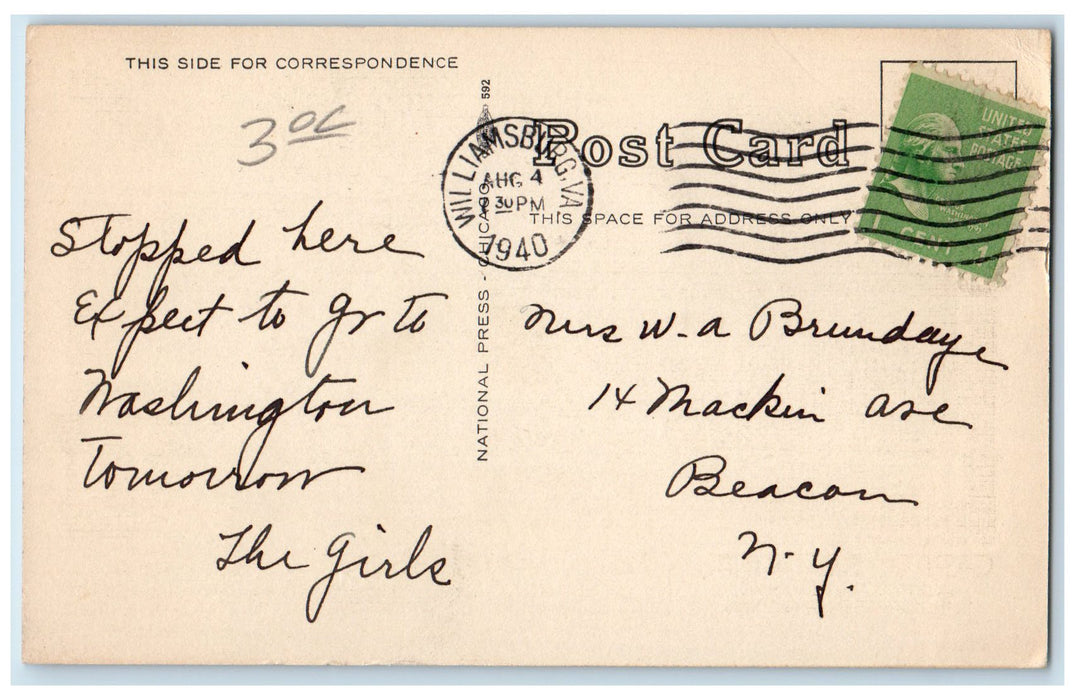 THIS SIDE FOR CORRESPONDENCE
3 00
592
Post Card
WILLIAMSBURG, VA.
AUG 4
30 PM
1940
THIS SPACE FOR ADDRESS ONLY
UNITED
STATES
POSTAGE
WASHINGTON
1 CENT 1
NATIONAL PRESS - CHICAGO
Stopped here
Expect to go to
Washington
Tomorrow
The Girls
Mrs W. A Brundage
14 Mackin Ave
Beacon
N. Y.